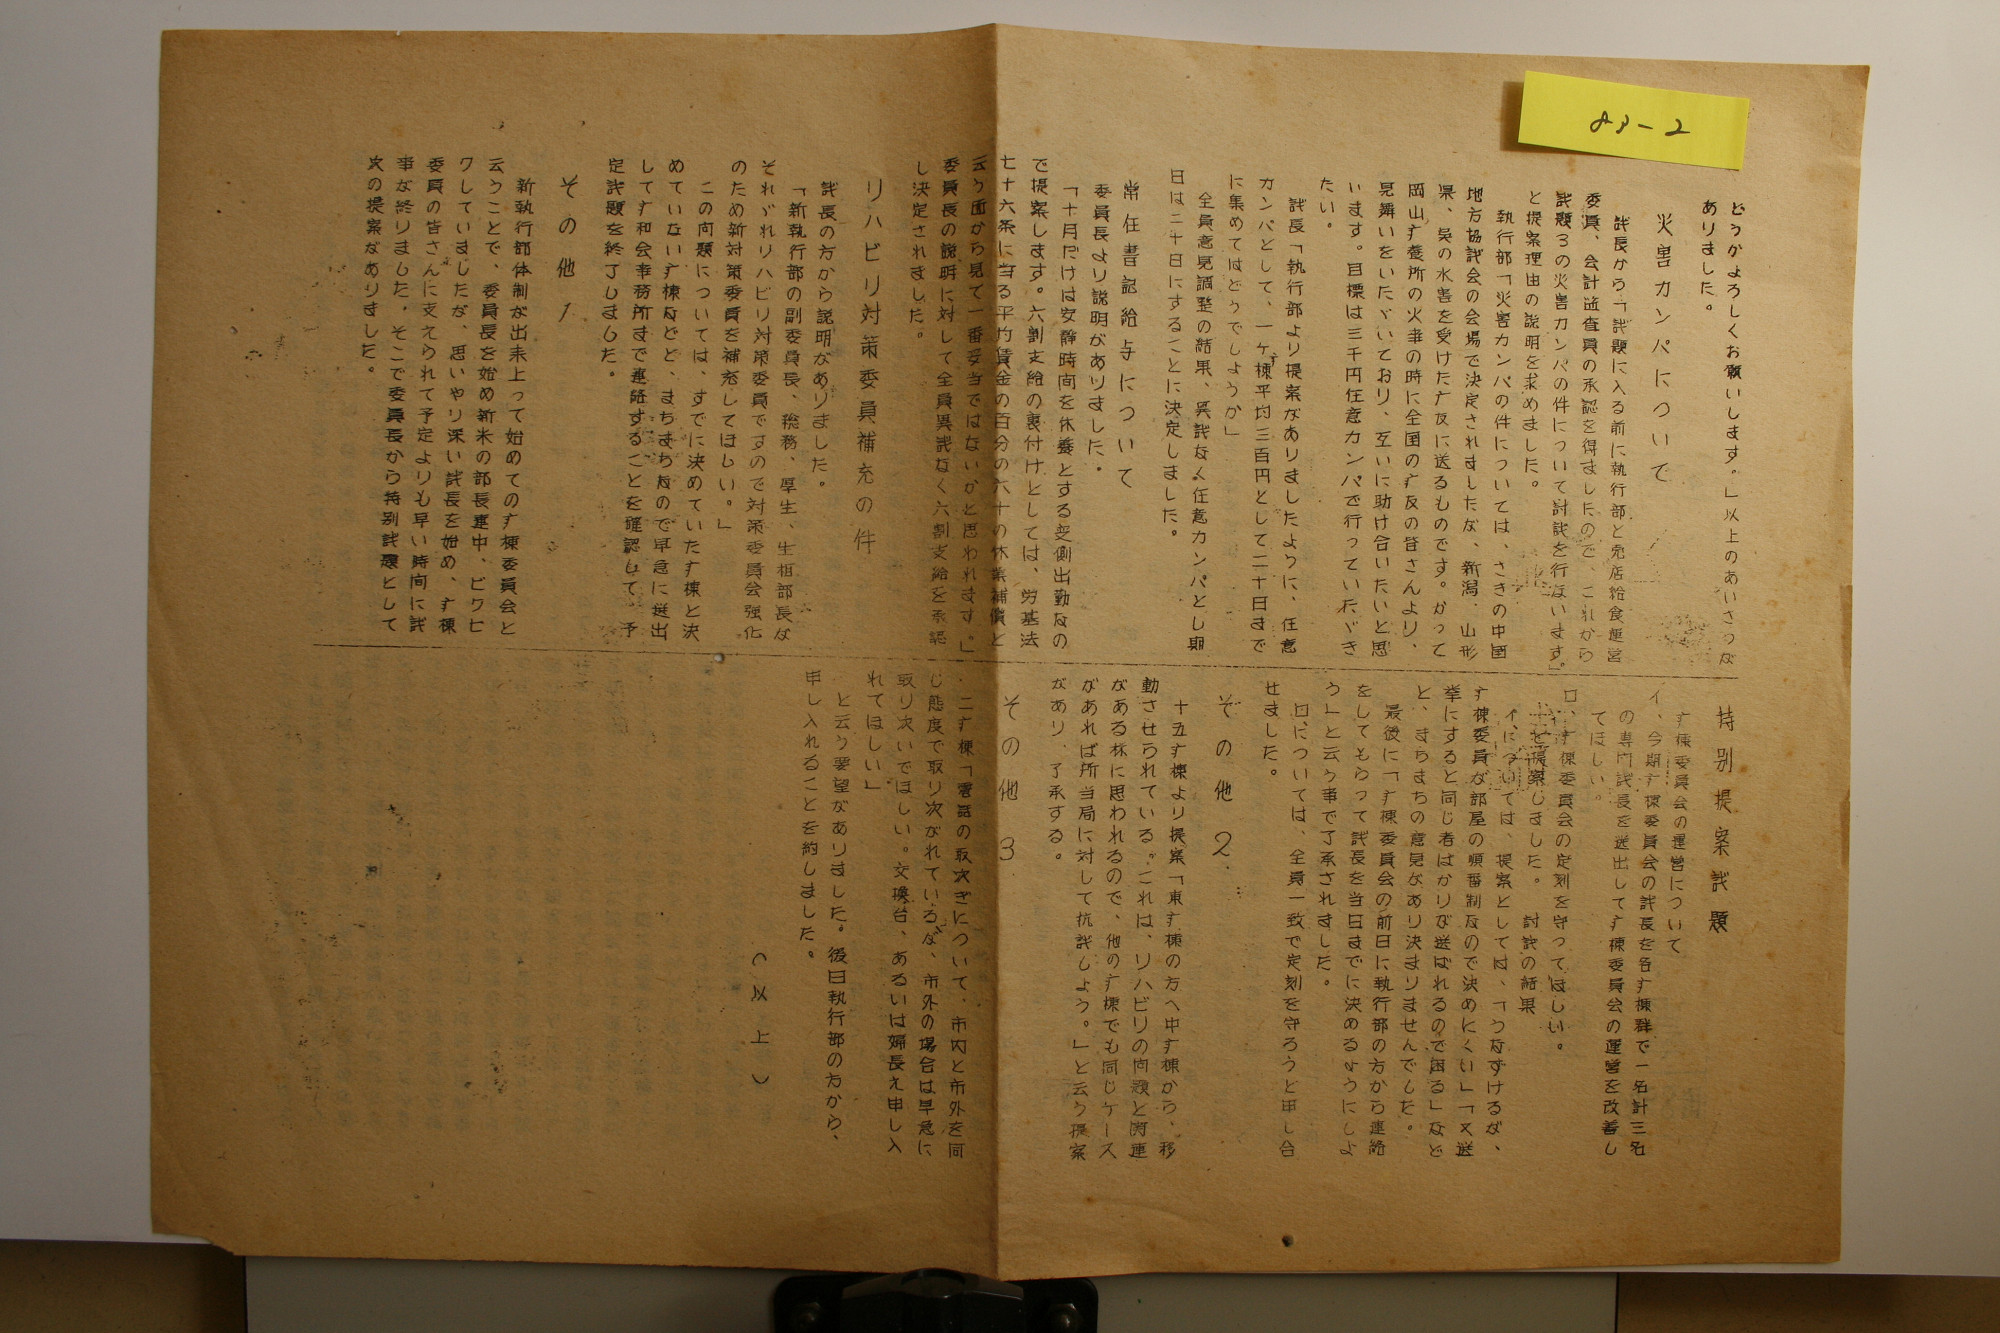 83-2
どうかよろしくお願いします。」以上のあいさつが
ありました。
災害カンパについて
議長から「議題に入る前に執行部と売店給食運営
委員、会計監査員の承認を得ましたので、これから
議題3の災害カンパの件について討議を行ないます。」
と提案理由の説明を求めました。
執行部「災害カンパの件については、さきの中国
地方協議会の会場で決定されましたが、新潟、山形
県、呉の水害を受けた疒友に送るものです。かって
岡山疒養所の火事の時に全国の疒友の皆さんより、
見舞いをいたゞいており、互いに助け合いたいと思
います。目標は三千円任意カンパで行っていたゞき
たい。
議長「執行部より提案がありましたように、任意
カンパとして、一ケ棟平均三百円として二十日まで
に集めてはどうでしょうか」
全員意見調整の結果、異議なく任意カンパとし期
日は二十日にすることに決定しました。
常任書記給与について
委員長より説明がありました。
「十月だけは安静時間を休養とする変則出勤なの
で提案します。六割支給の裏付けとしては、労基法
七十六条に当る平均賃金の百分の六十の休業補償と
云う面から見て一番妥当ではないかと思われます」
委員長の説明に対して全員異議なく六割支給を承認
し決定されました。
リハビリ対策委員補充の件
議長の方から説明がありました。
「新執行部の副委員長、総務、厚生、生相部長が
それゞれリハビリ対策委員ですので対策委員会強化
のため新対策委員を補充してほしい。」
この问題については、すでに決めていた疒棟と決
めていない疒棟などと、まちまちなので早急に選出
して疒和会事務所まで連絡することを確認して、予
定議題を終了しました。
その他 1
新執行部体制が出来上って始めての疒棟委員会と
云うことで、委員長を始め新米の部長連中、ビクビ
クしていましたが、思いやり深い議長を始め、疒棟
委員の皆さんに支えられて予定よりも早い時间に議
事が終りました。そこで委員長から特别議題として
次の提案がありました。
特别提案議題
疒棟委員会の運営について
イ、今期疒棟委員会の議長を各疒棟群で一名計三名
の専门議長を送出して疒棟委員会の運営を改善し
てほしい。
ロ、疒棟委員会の定刻を守ってほしい。
を提案しました。 討議の結果
イ、については、提案としては、「うなずけるが、
疒棟委員が部屋の順番制なので決めにくい」「又送
挙にすると同じ者ばかりが送ばれるので困る」など
と、まちまちの意見があり決まりませんでした。
最後に「疒棟委員会の前日に執行部の方から連絡
をしてもらって議長を当日までに決めるようにしよ
う」と云う事で了承されました。
ロ、については、全員一致で定刻を守ろうと申し合
せました。
その他 2.
十五疒棟より提案「東疒棟の方へ中疒棟から、移
動させられている。これは、リハビリの问題と関連
がある様に思われるので、他の疒棟でも同じケース
があれば所当局に対して抗議しよう。」と云う提案
があり、了承する。
その他 3
二疒棟「電話の取次ぎについて、市内と市外を同
じ態度で取り次がれているが、市外の場合は早急に
取り次いでほしい。交換台、あるいは婦長え申し入
れてほしい」
と云う要望がありました。後日執行部の方から、
申し入れることを約しました。
(以上)